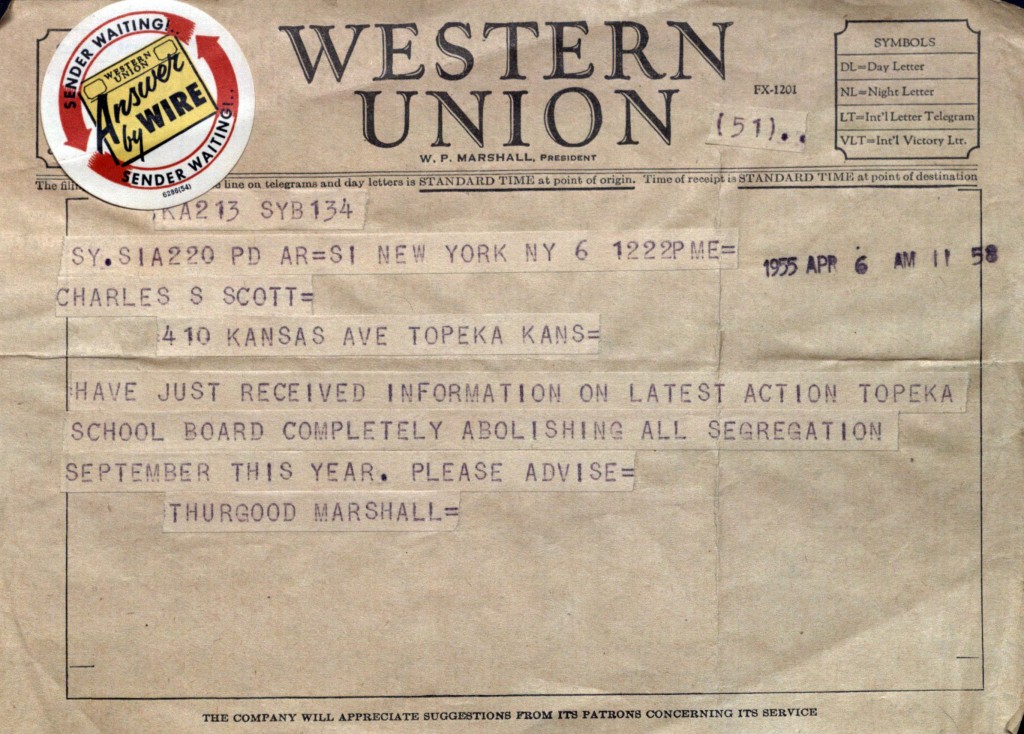 SENDER WAITING!..
WESTERN
UNION
Answer
by WIRE
SENDER WAITING!..
SENDER WAITING!
6286(54)
WESTERN
UNION
W. P. MARSHALL, PRESIDENT
FX-1201
(51)..
SYMBOLS
DL=Day Letter
NL=Night Letter
LT=Int'l Letter Telegram
VLT=Int'l Victory Ltr.
The line on telegrams and day letters is STANDARD TIME at point of origin. Time of receipt is STANDARD TIME at point of destination
KA213 SYB134
SY.SIA220 PD AR=SI NEW YORK NY 6 1222PME=
1955 APR 6 AM 11 58
CHARLES S SCOTT=
410 KANSAS AVE TOPEKA KANS=
HAVE JUST RECEIVED INFORMATION ON LATEST ACTION TOPEKA
SCHOOL BOARD COMPLETELY ABOLISHING ALL SEGREGATION
SEPTEMBER THIS YEAR. PLEASE ADVISE=
THURGOOD MARSHALL=
THE COMPANY WILL APPRECIATE SUGGESTIONS FROM ITS PATRONS CONCERNING ITS SERVICE